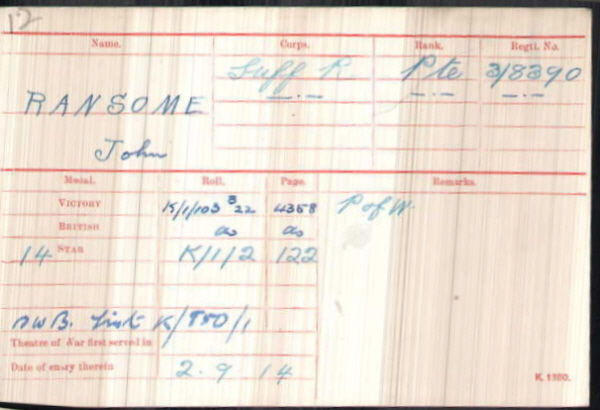 12
Name. Corps. Rank. Regtl. No.
Suff R Pte 3/8390
RANSOME
John
Medal. Roll. Page. Remarks.
VICTORY K/1/103 B22 4358 P of W.
BRITISH do do
14 STAR K/1/2 122
SWB. List K/750/1
Theatre of War first served in
Date of entry therein 2.9.14
K. 1380.